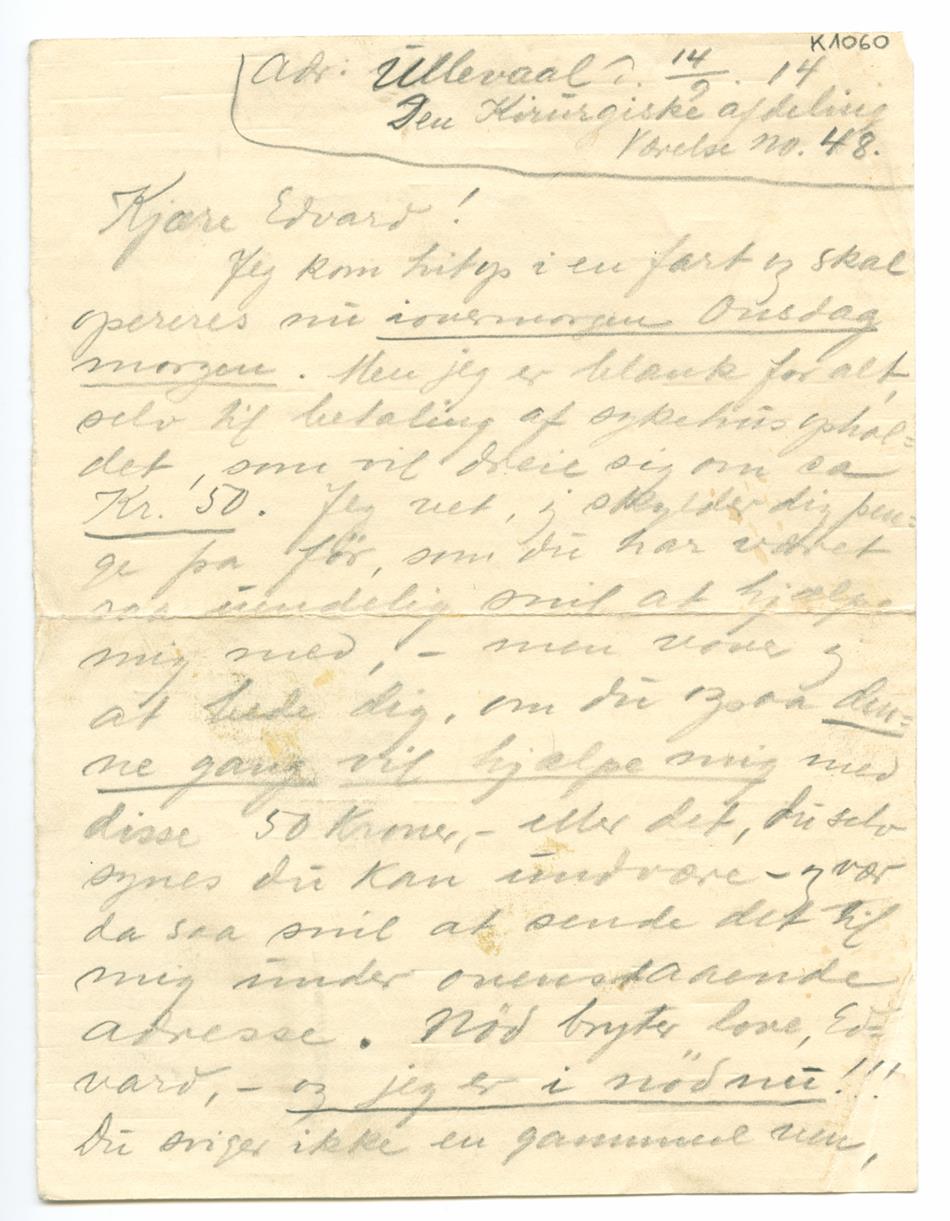 K1060
Adr. Ullevaal d. 14/9. 14
Den Kirurgiske afdeling
Værelse No. 48.
Kjære Edvard!
Jeg kom hitop i en fart og skal
opereres nu iovermorgen Onsdag
morgen. Men jeg er blank for alt,
selv til betaling af sykehusophol=
det, som vil dreie sig om ca
Kr. 50. Jeg vet, jeg skylder dig pen=
ge fra før, som du har været
saa uendelig snil at hjælpe
mig med, – men vover jeg
at bede dig, om du ogsaa den=
ne gang vil hjælpe mig med
disse 50 Kroner, – eller det, du selv
synes du kan undvære – og vær
da saa snil at sende det til
mig under ovenstaaende
adresse. Nöd bryter love, Ed=
vard, – og jeg er i nöd nu!!!
Du sviger ikke en gammel ven,